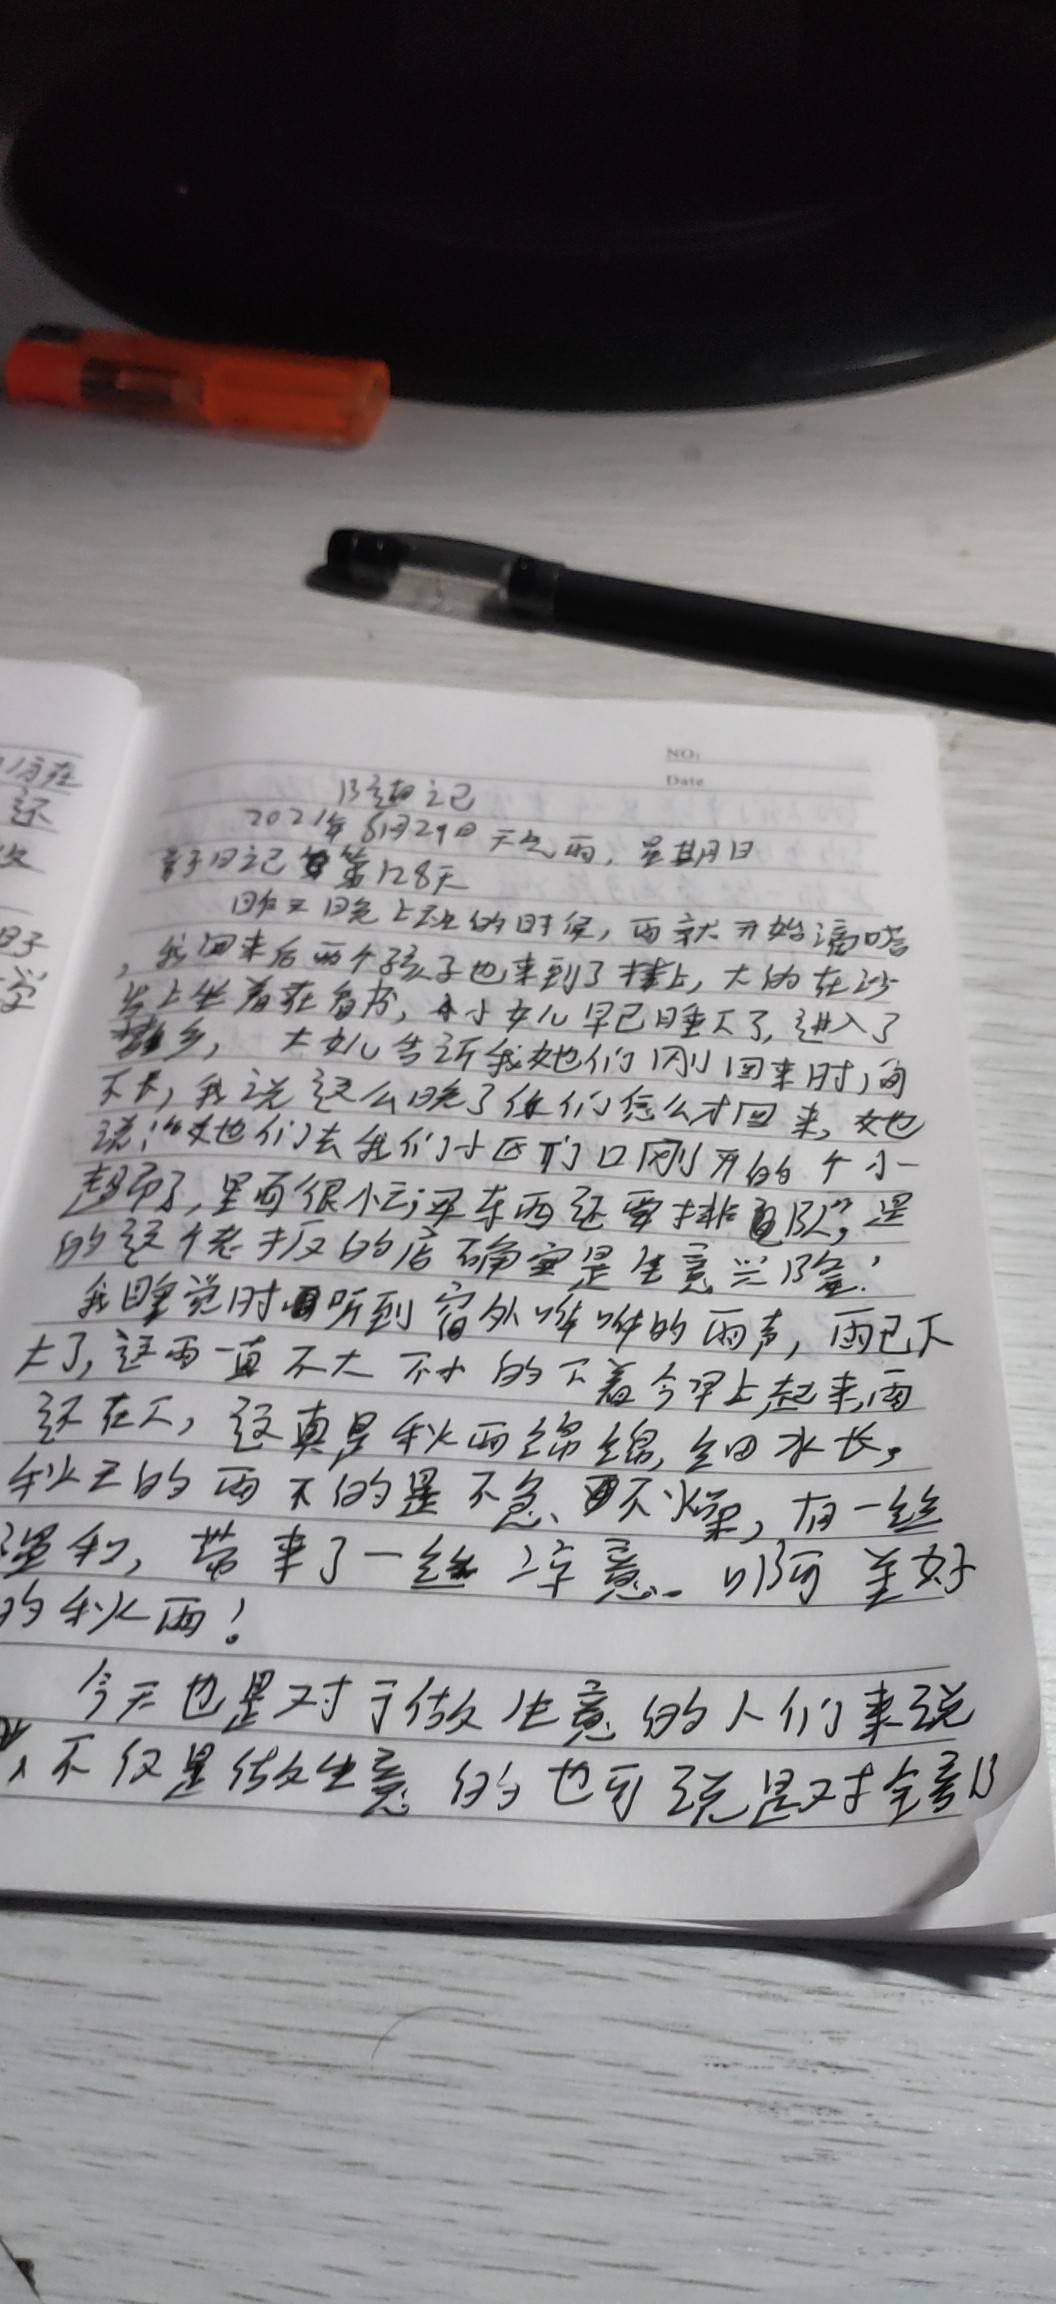 NO:
Date
随记
2021年8月29日 天气雨，星期日
亲子日记 第128天
昨天晚上班的时候，雨就开始滴嗒
，我回来后两个孩子也来到了楼上，大的在沙
发上坐着在看书，小女儿早已睡下了，进入了
梦乡， 大女儿告诉我她们刚回来时间
不长，我说这么晚了你们怎么才回来，她
说："她们去我们小区门口刚开的个小
超市了，里面很小，买东西还要排直队"，是
的这个老板的店确实是生意兴隆！
我睡觉时听到窗外哗哗的雨声，雨已下
大了，这雨一直不大不小的下着今早上起来雨
还在下，这真是秋雨绵绵，细水长，
秋天的雨下的是不急、不燥，有一丝
温和，带来了一丝凉意.. 啊 美好
的秋雨！
今天也是对于做生意的人们来说
不仅是做生意的也可说是对全部
们在
还
子
学